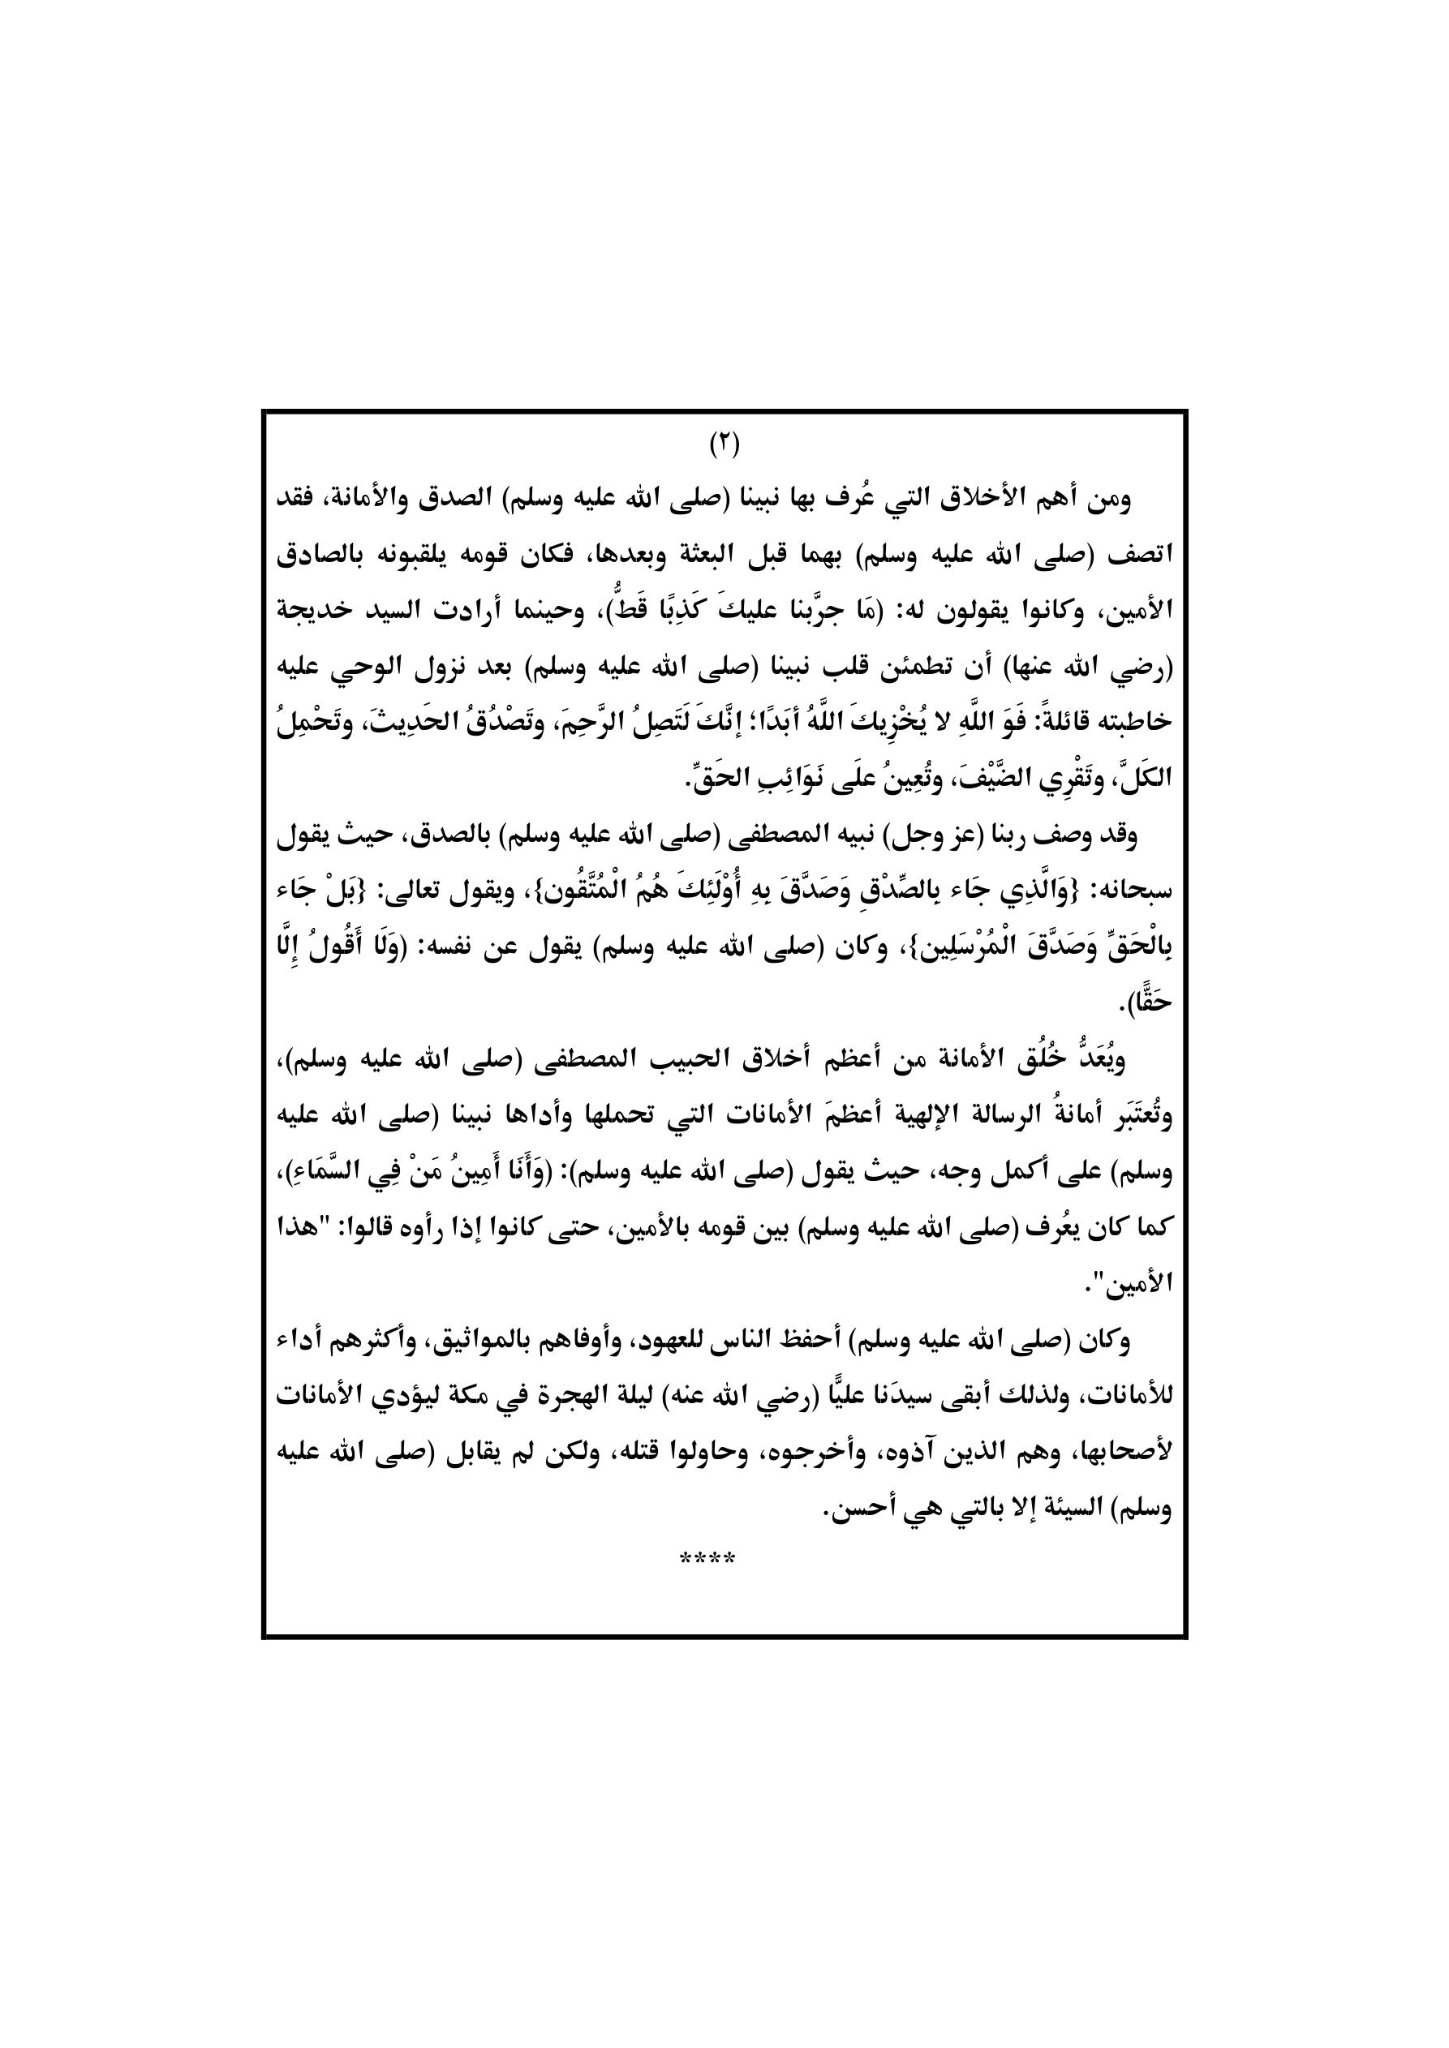 (٢)
ومن أهم الأخلاق التي عُرف بها نبينا (صلى الله عليه وسلم) الصدق والأمانة، فقد
اتصف (صلى الله عليه وسلم) بهما قبل البعثة وبعدها، فكان قومه يلقبونه بالصادق
الأمين، وكانوا يقولون له: (مَا جرَّبنا عليكَ كَذِبًا قَطُّ)، وحينما أرادت السيد خديجة
(رضي الله عنها) أن تطمئن قلب نبينا (صلى الله عليه وسلم) بعد نزول الوحي عليه
خاطبته قائلةً: فَوَ اللَّهِ لا يُخْزِيكَ اللَّهُ أبَدًا؛ إنَّكَ لَتَصِلُ الرَّحِمَ، وتَصْدُقُ الحَدِيثَ، وتَحْمِلُ
الكَلَّ، وتَقْرِي الضَّيْفَ، وتُعِينُ علَى نَوَائِبِ الحَقِّ.
وقد وصف ربنا (عز وجل) نبيه المصطفى (صلى الله عليه وسلم) بالصدق، حيث يقول
سبحانه: {وَالَّذِي جَاء بِالصِّدْقِ وَصَدَّقَ بِهِ أُوْلَئِكَ هُمُ الْمُتَّقُون}، ويقول تعالى: {بَلْ جَاء
بِالْحَقِّ وَصَدَّقَ الْمُرْسَلِين}، وكان (صلى الله عليه وسلم) يقول عن نفسه: (وَلَا أَقُولُ إِلَّا
حَقًّا).
ويُعَدُّ خُلُق الأمانة من أعظم أخلاق الحبيب المصطفى (صلى الله عليه وسلم)،
وتُعتَبَر أمانةُ الرسالة الإلهية أعظمَ الأمانات التي تحملها وأداها نبينا (صلى الله عليه
وسلم) على أكمل وجه، حيث يقول (صلى الله عليه وسلم): (وَأَنَا أَمِينُ مَنْ فِي السَّمَاءِ)،
كما كان يعُرف (صلى الله عليه وسلم) بين قومه بالأمين، حتى كانوا إذا رأوه قالوا: "هذا
الأمين".
وكان (صلى الله عليه وسلم) أحفظ الناس للعهود، وأوفاهم بالمواثيق، وأكثرهم أداء
للأمانات، ولذلك أبقى سيدَنا عليًّا (رضي الله عنه) ليلة الهجرة في مكة ليؤدي الأمانات
لأصحابها، وهم الذين آذوه، وأخرجوه، وحاولوا قتله، ولكن لم يقابل (صلى الله عليه
وسلم) السيئة إلا بالتي هي أحسن.
****